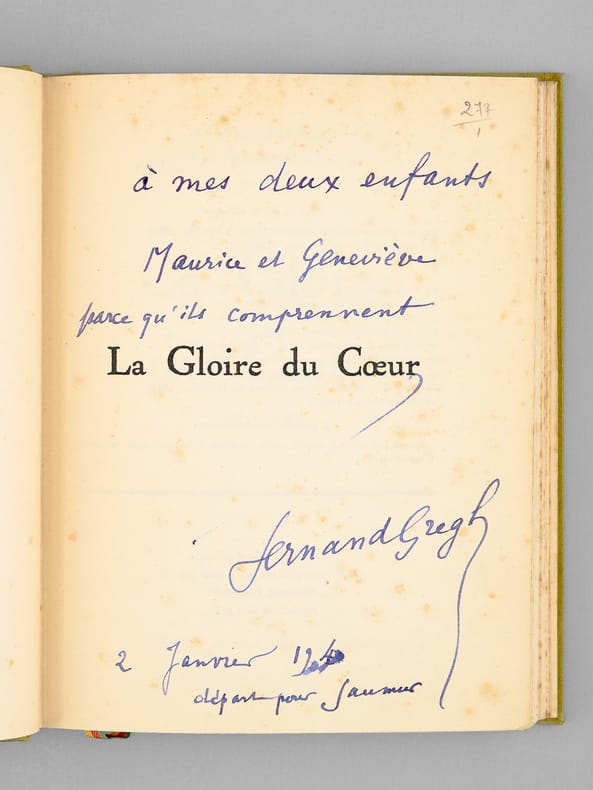 277
1
à mes deux enfants
Maurice et Geneviève
parce qu'ils comprennent
La Gloire du Cœur
Fernand Gregh
2 Janvier
départ pour Saumur